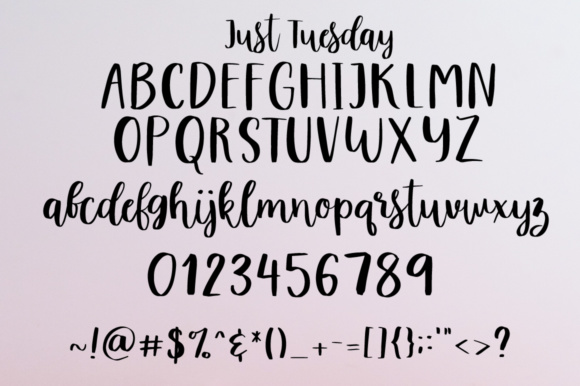 Just Tuesday
ABCDEFGHIJKLMN
OPQRSTUVWXYZ
abcdefghijklmnopqrstuvwxyz
0123456789
~!@#$%^&*()_+-=[]{};:'"<>?